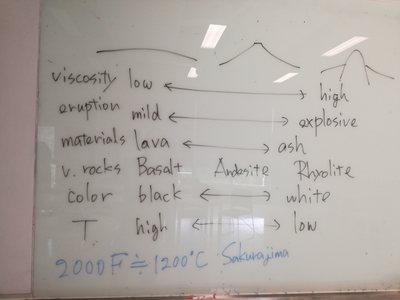 viscosity low high
eruption mild explosive
materials lava ash
v. rocks Basalt Andesite Rhyolite
color black white
T high low
2000F≒1200°C Sakurajima